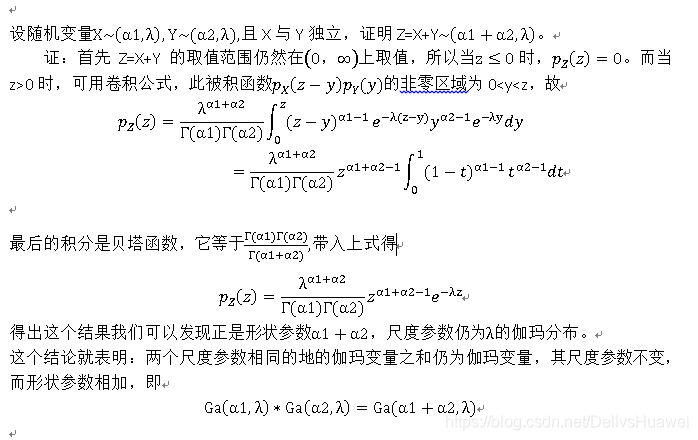 设随机变量X~(α1,λ),Y~(α2,λ),且 X 与 Y 独立，证明 Z=X+Y~(α1 + α2,λ) 。
证：首先 Z=X+Y 的取值范围仍然在(0，∞)上取值，所以当z ≤ 0 时，p_Z(z) = 0。而当
z>0 时，可用卷积公式，此被积函数p_X(z − y)p_Y(y)的非零区域为 0<y<z，故
p_Z(z) = λ^{α1+α2}/(Γ(α1)Γ(α2)) ∫_0^z (z − y)^{α1−1} e^{−λ(z−y)} y^{α2−1} e^{−λy} dy
= λ^{α1+α2}/(Γ(α1)Γ(α2)) z^{α1+α2−1} ∫_0^1 (1 − t)^{α1−1} t^{α2−1} dt
最后的积分是贝塔函数，它等于Γ(α1)Γ(α2)/Γ(α1+α2),带入上式得
p_Z(z) = λ^{α1+α2}/(Γ(α1)Γ(α2)) z^{α1+α2−1} e^{−λz}
得出这个结果我们可以发现正是形状参数α1 + α2，尺度参数仍为λ的伽玛分布。
这个结论就表明：两个尺度参数相同的地的伽玛变量之和仍为伽玛变量，其尺度参数不变，
而形状参数相加，即
Ga(α1,λ) ∗ Ga(α2,λ) = Ga(α1 + α2,λ)
https://blog.csdn.net/DellvsHuawei